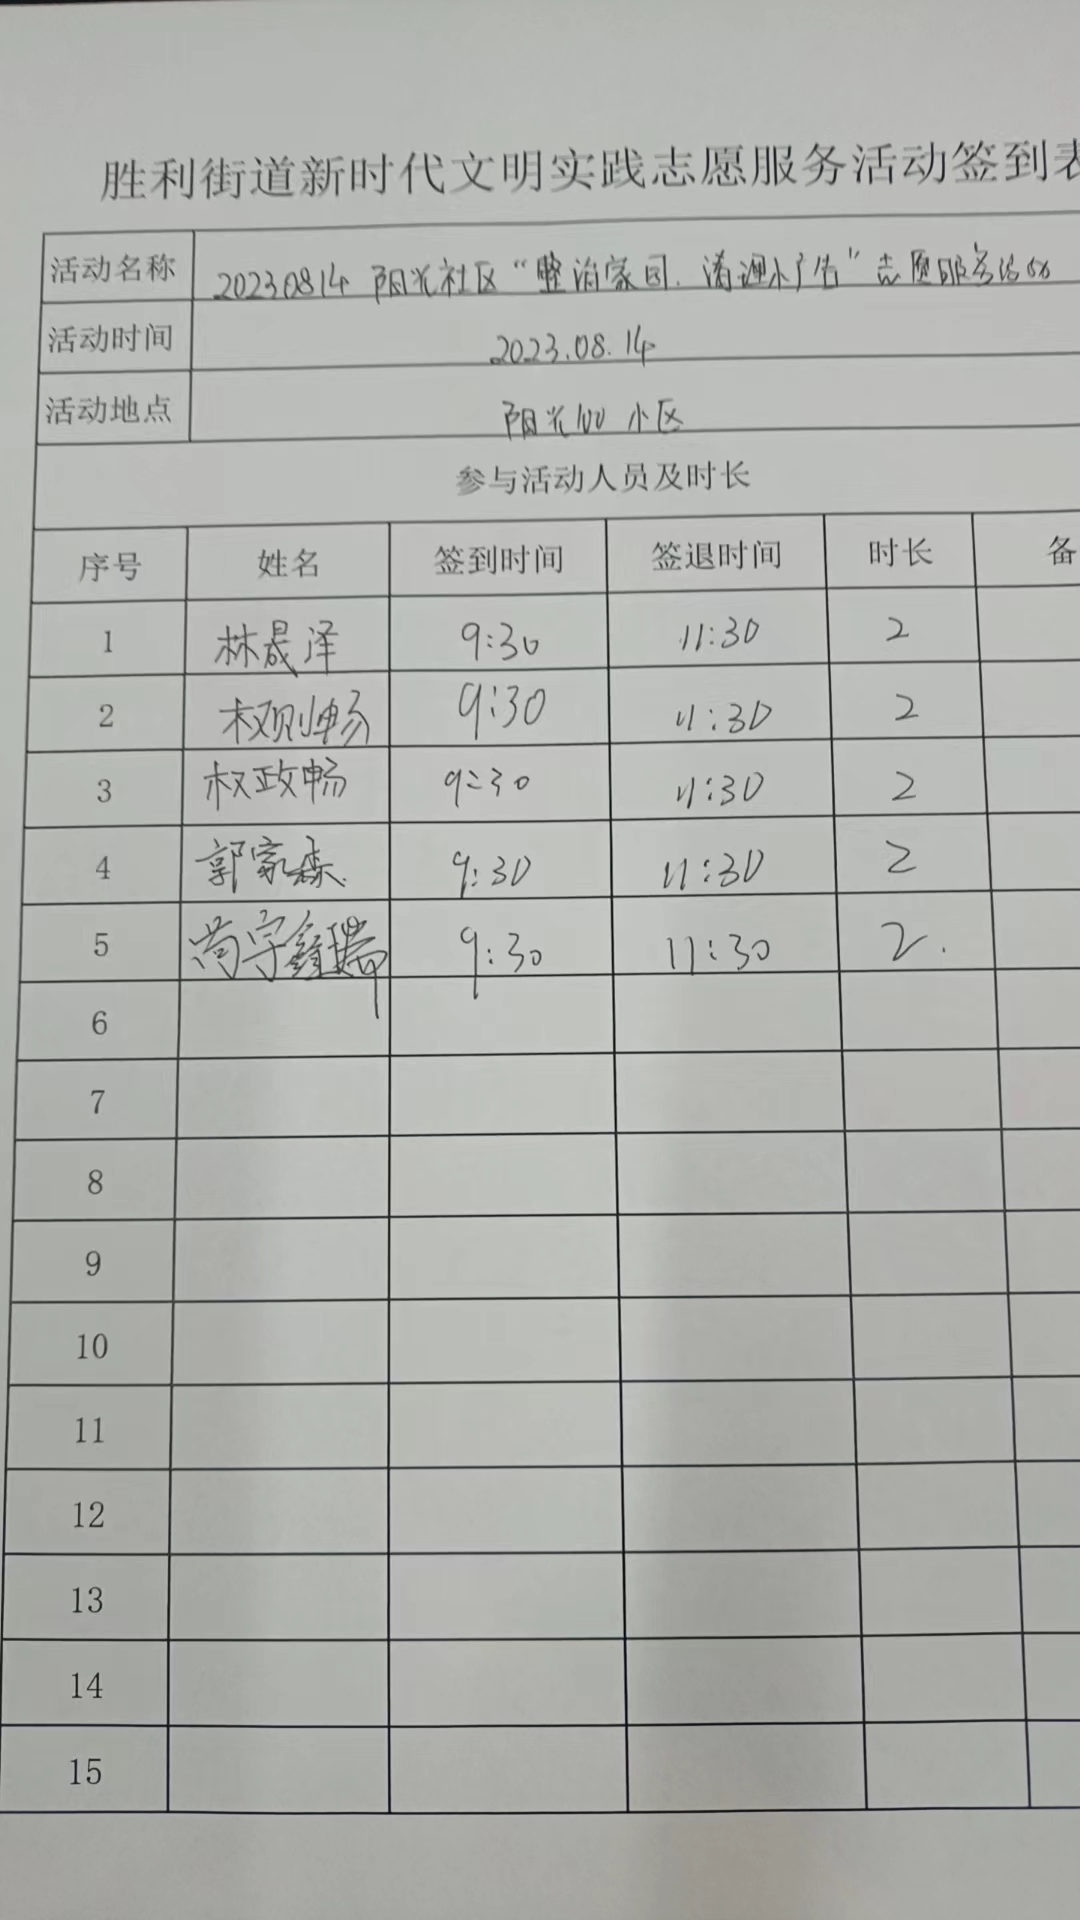 胜利街道新时代文明实践志愿服务活动签到表
活动名称 20230814 阳光社区“整治家园.清理小广告”志愿服务活动
活动时间 2023.08.14
活动地点 阳光100 小区
参与活动人员及时长
序号 姓名 签到时间 签退时间 时长 备
1 林晟泽 9:30 11:30 2
2 权则畅 9:30 11:30 2
3 权政畅 9:30 11:30 2
4 郭家森 9:30 11:30 2
5 尚宇鑫瑞 9:30 11:30 2.
6
7
8
9
10
11
12
13
14
15